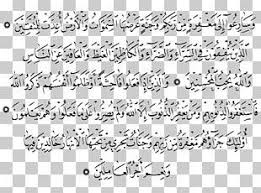 وَسَارِعُوا إِلَىٰ مَغْفِرَةٍ مِنْ رَبِّكُمْ وَجَنَّةٍ عَرْضُهَا السَّمَوَاتُ وَالْأَرْضُ أُعِدَّتْ لِلْمُتَّقِينَ
الَّذِينَ يُنْفِقُونَ فِي السَّرَّاءِ وَالضَّرَّاءِ وَالْكَاظِمِينَ الْغَيْظَ وَالْعَافِينَ عَنِ النَّاسِ
وَاللَّهُ يُحِبُّ الْمُحْسِنِينَ وَالَّذِينَ إِذَا فَعَلُوا فَاحِشَةً أَوْ ظَلَمُوا أَنْفُسَهُمْ ذَكَرُوا اللَّهَ
فَاسْتَغْفَرُوا لِذُنُوبِهِمْ وَمَنْ يَغْفِرُ الذُّنُوبَ إِلَّا اللَّهُ وَلَمْ يُصِرُّوا عَلَىٰ مَا فَعَلُوا وَهُمْ يَعْلَمُونَ
أُولَٰئِكَ جَزَاؤُهُمْ مَغْفِرَةٌ مِنْ رَبِّهِمْ وَجَنَّاتٌ تَجْرِي مِنْ تَحْتِهَا الْأَنْهَارُ خَالِدِينَ فِيهَا
وَنِعْمَ أَجْرُ الْعَامِلِينَ